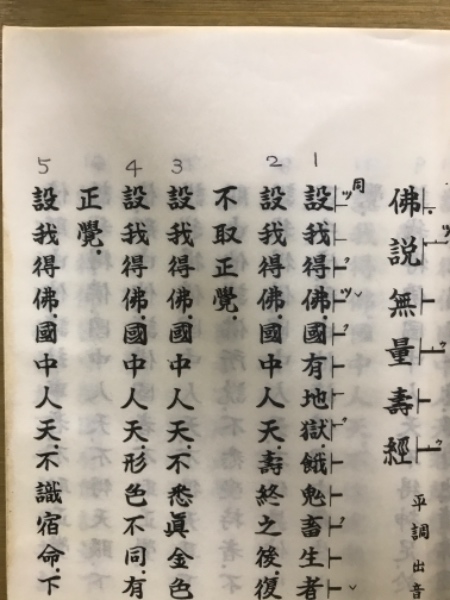 佛説無量壽經
平調 出音
同
1
設我得佛.國有地獄.餓鬼畜生者
2
設我得佛.國中人天.壽終之後.復
不取正覺.
3
設我得佛.國中人天.不悉眞金色
4
設我得佛.國中人天.形色不同.有
正覺.
5
設我得佛.國中人天.不識宿命.下